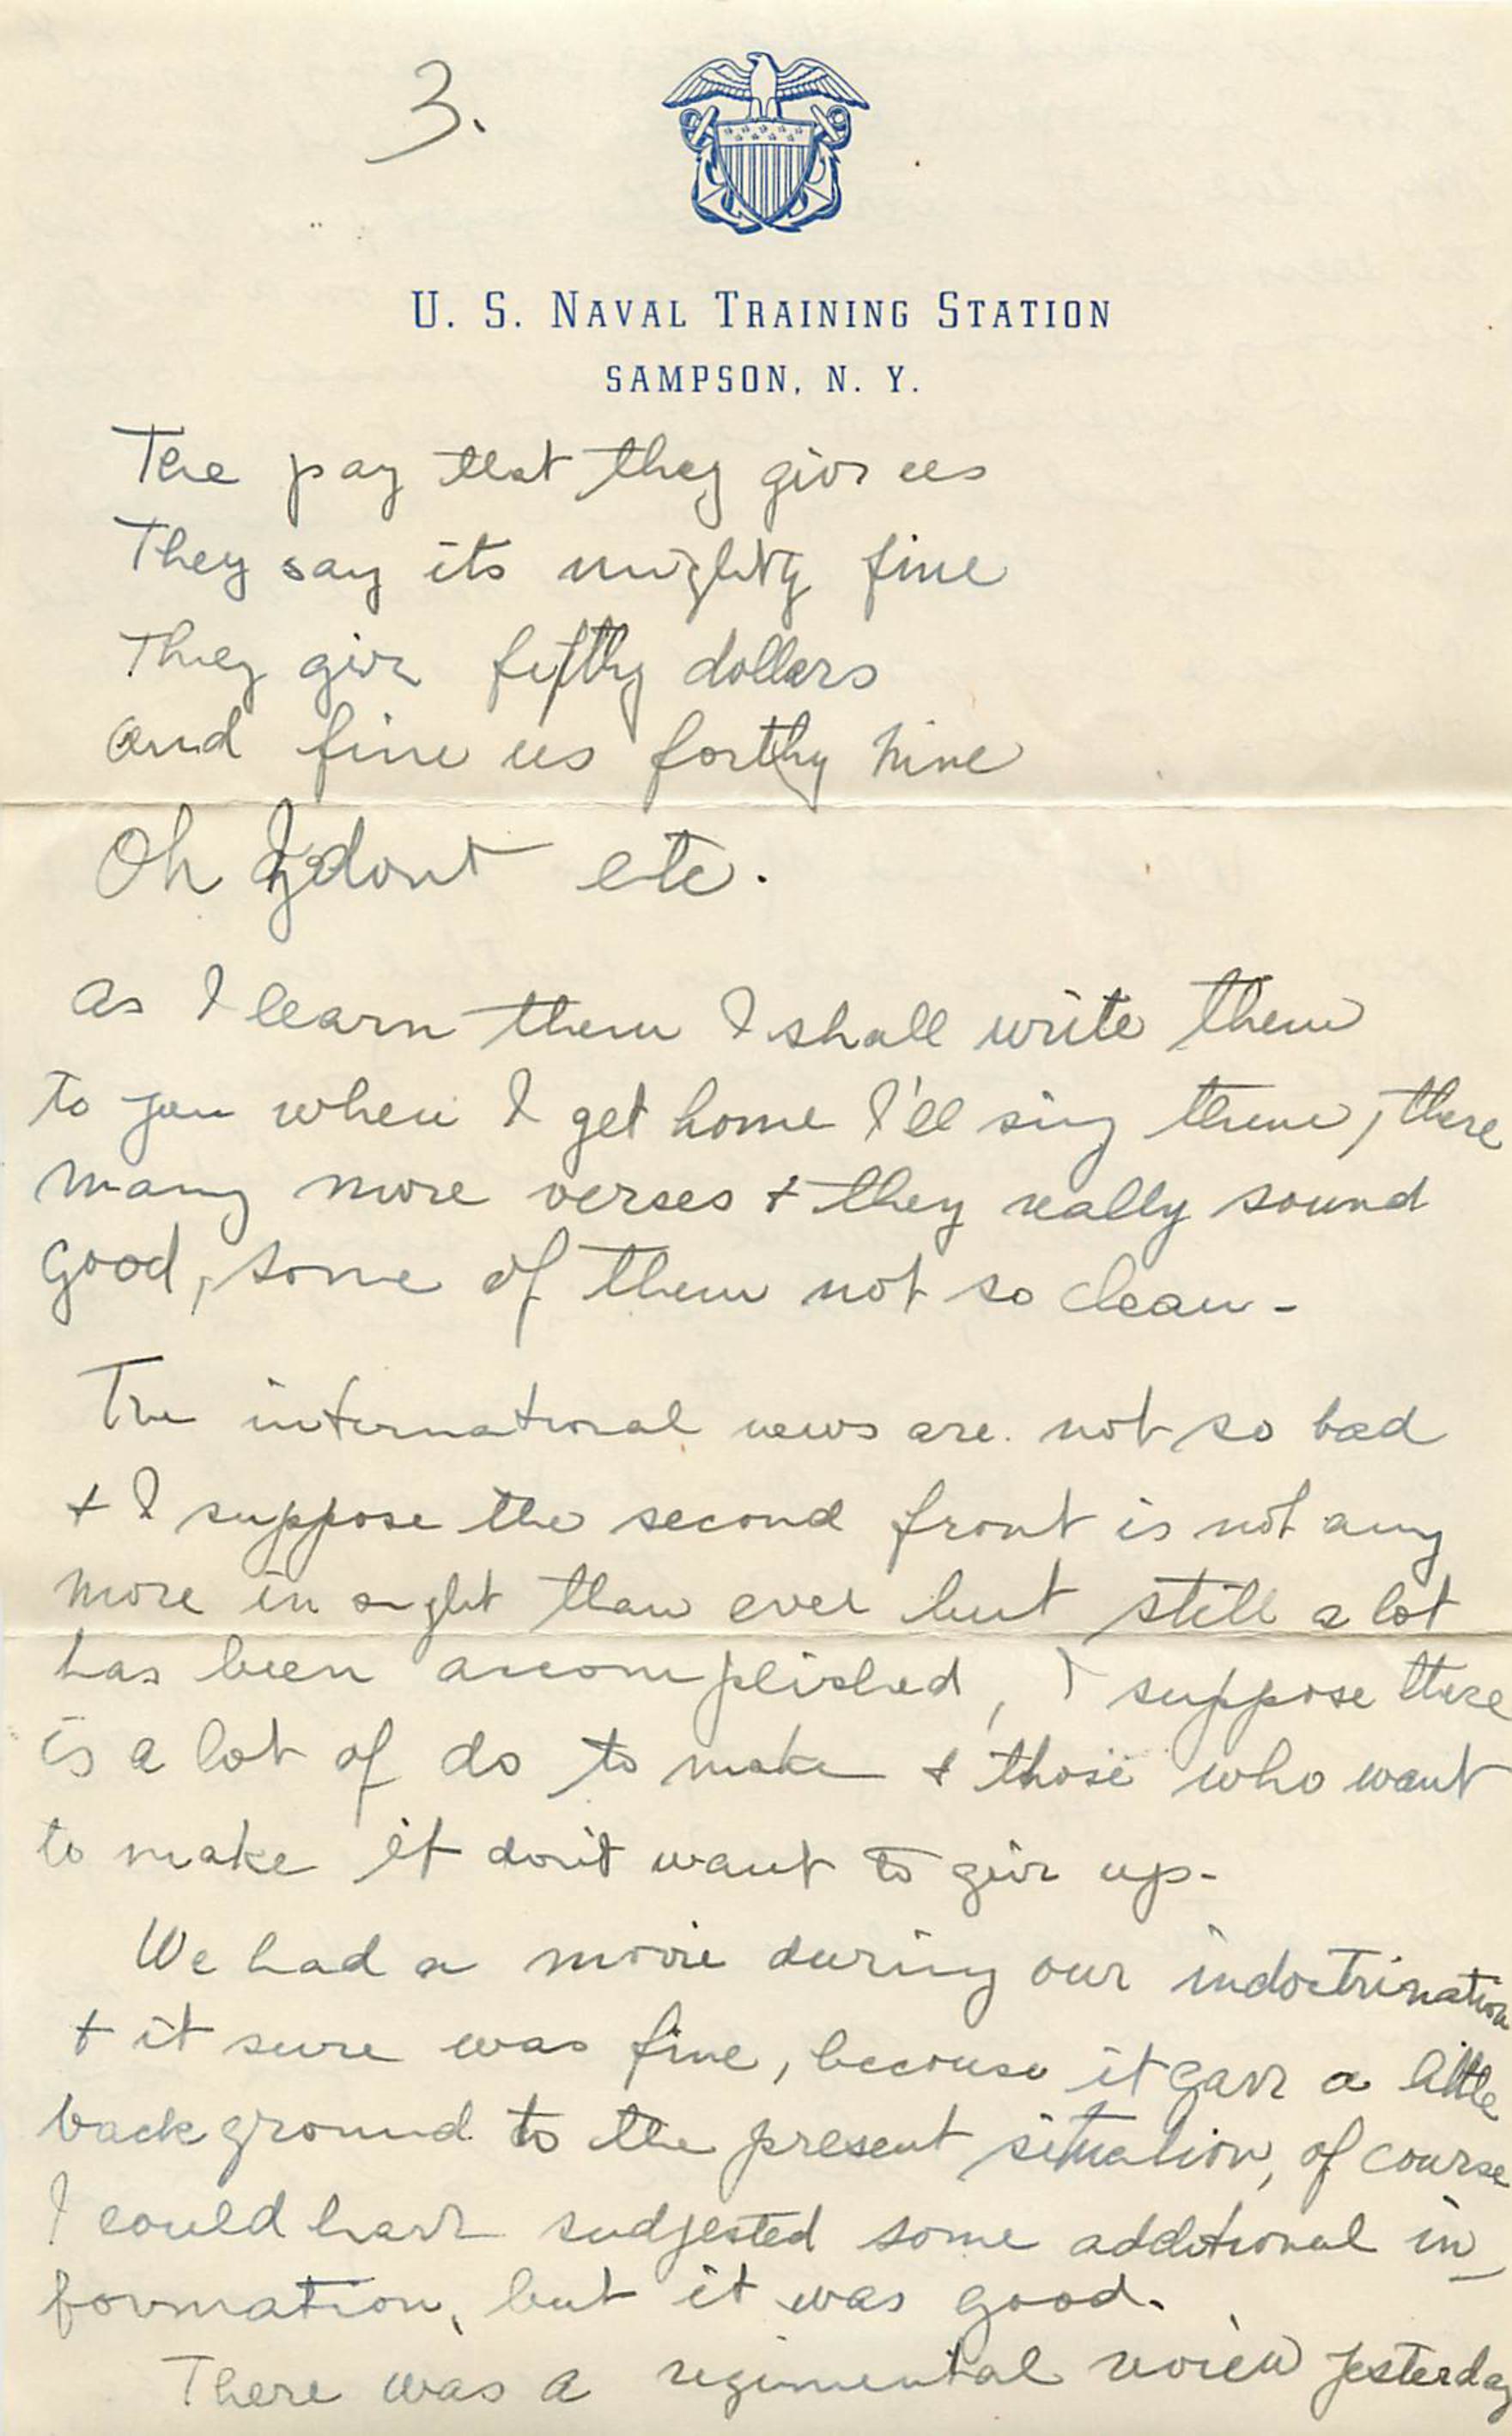 3.
U. S. NAVAL TRAINING STATION
SAMPSON, N. Y.
The pay that they give us
They say its mighty fine
They give fifthy dollars
and fine us forthy nine
Oh I dont etc.
as I learn them I shall write them
to you when I get home I'll sing them, there
many more verses + they really sound
good, some of them not so clean-
The international news are not so bad
+ I suppose the second front is not any
more in sight than ever but still a lot
has been accomplished, I suppose there
is a lot of do to make + those who want
to make it don't want to give up-
We had a movie during our indoctrination
+ it sure was fine, because it gave a little
background to the present situation, of course
I could have sudjested some additional in_
formation, but it was good.
There was a regimental review yesterday